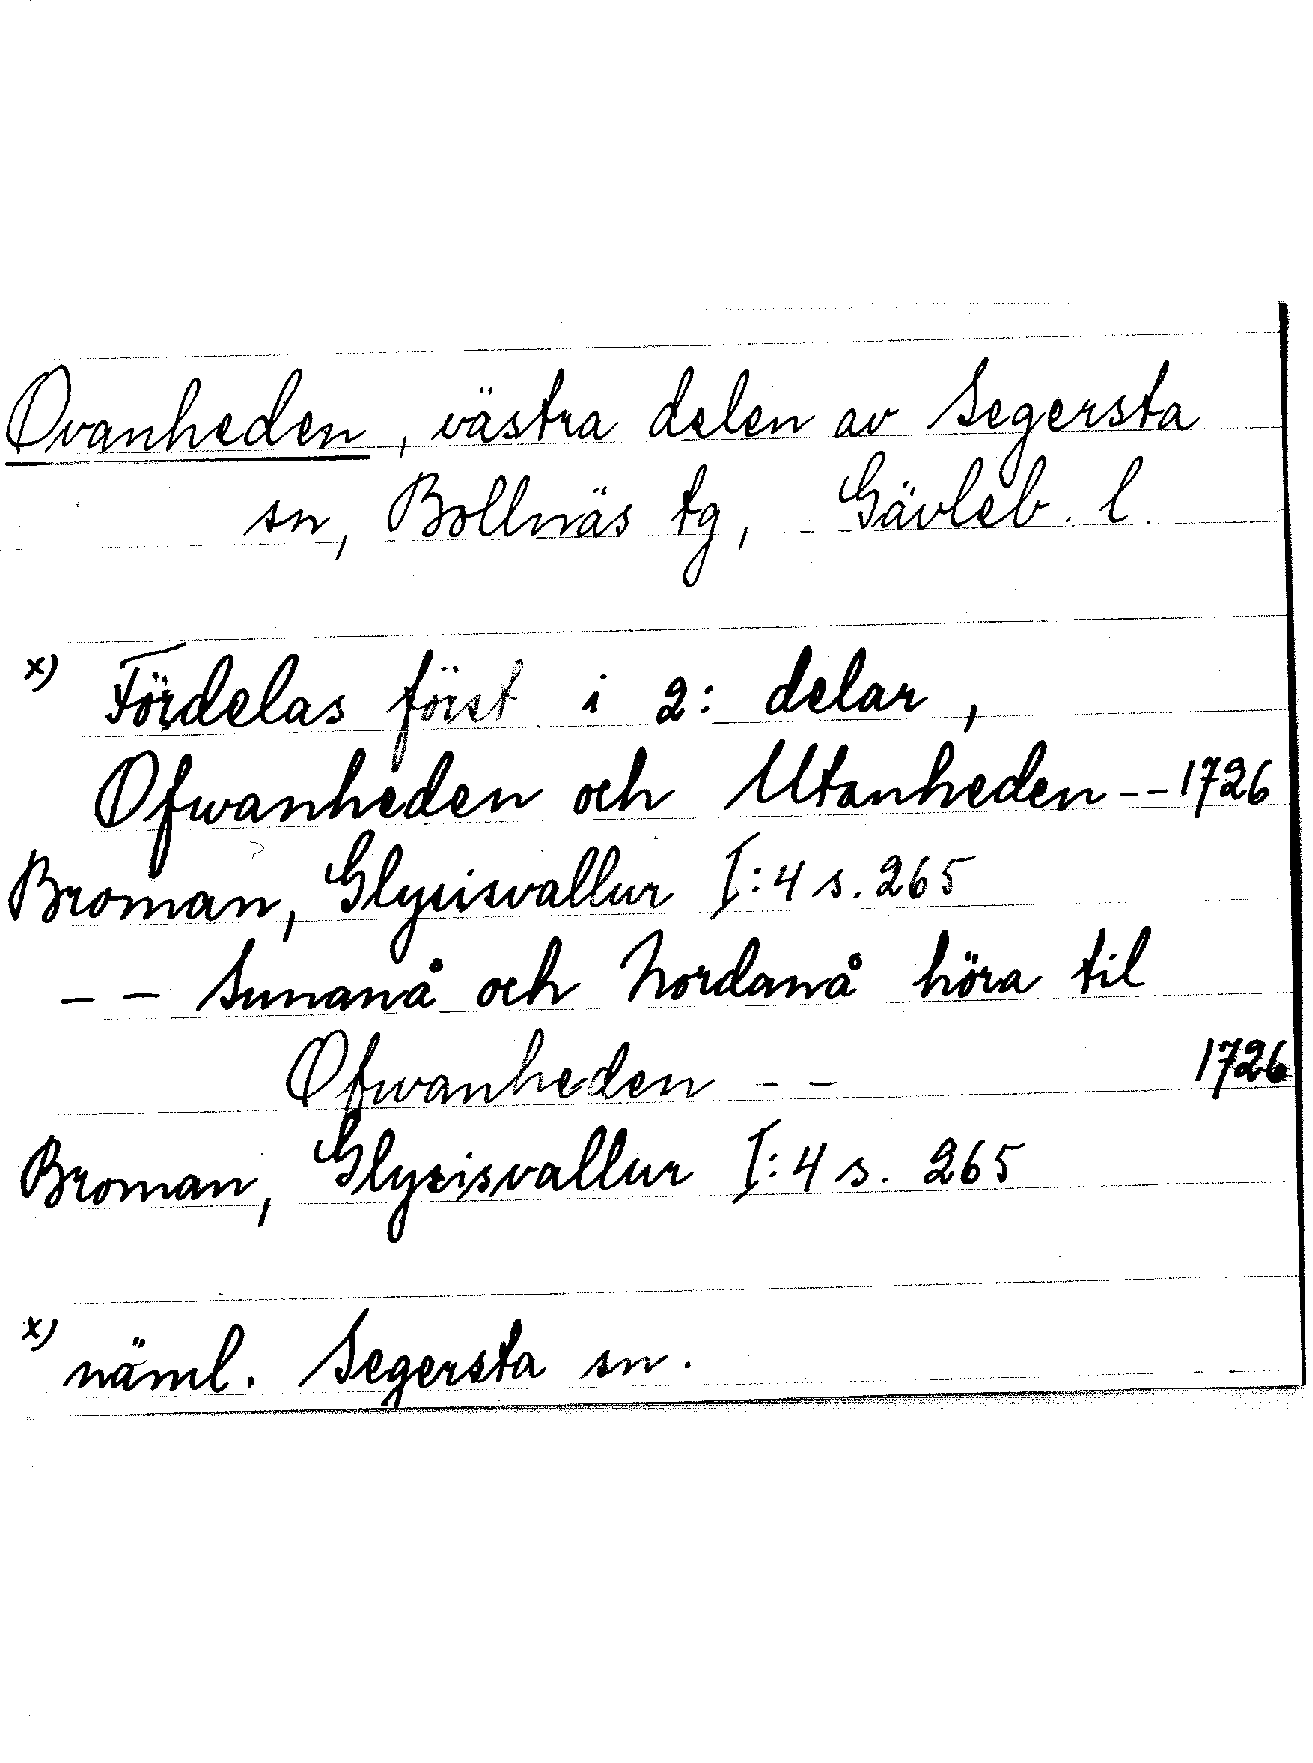 Ovanheden, västra delen av Segersta
sn, Bollnäs tg, Gävleb. l.
x) Fördelas först i 2: delar,
Ofwanheden och Utanheden -- 1726
Broman, Glysisvallur I:4 s. 265
-- Sunanå och Nordanå höra til
Ofwanheden -- 1726
Broman, Glysisvallur I:4 s. 265
x) näml. Segersta sn.